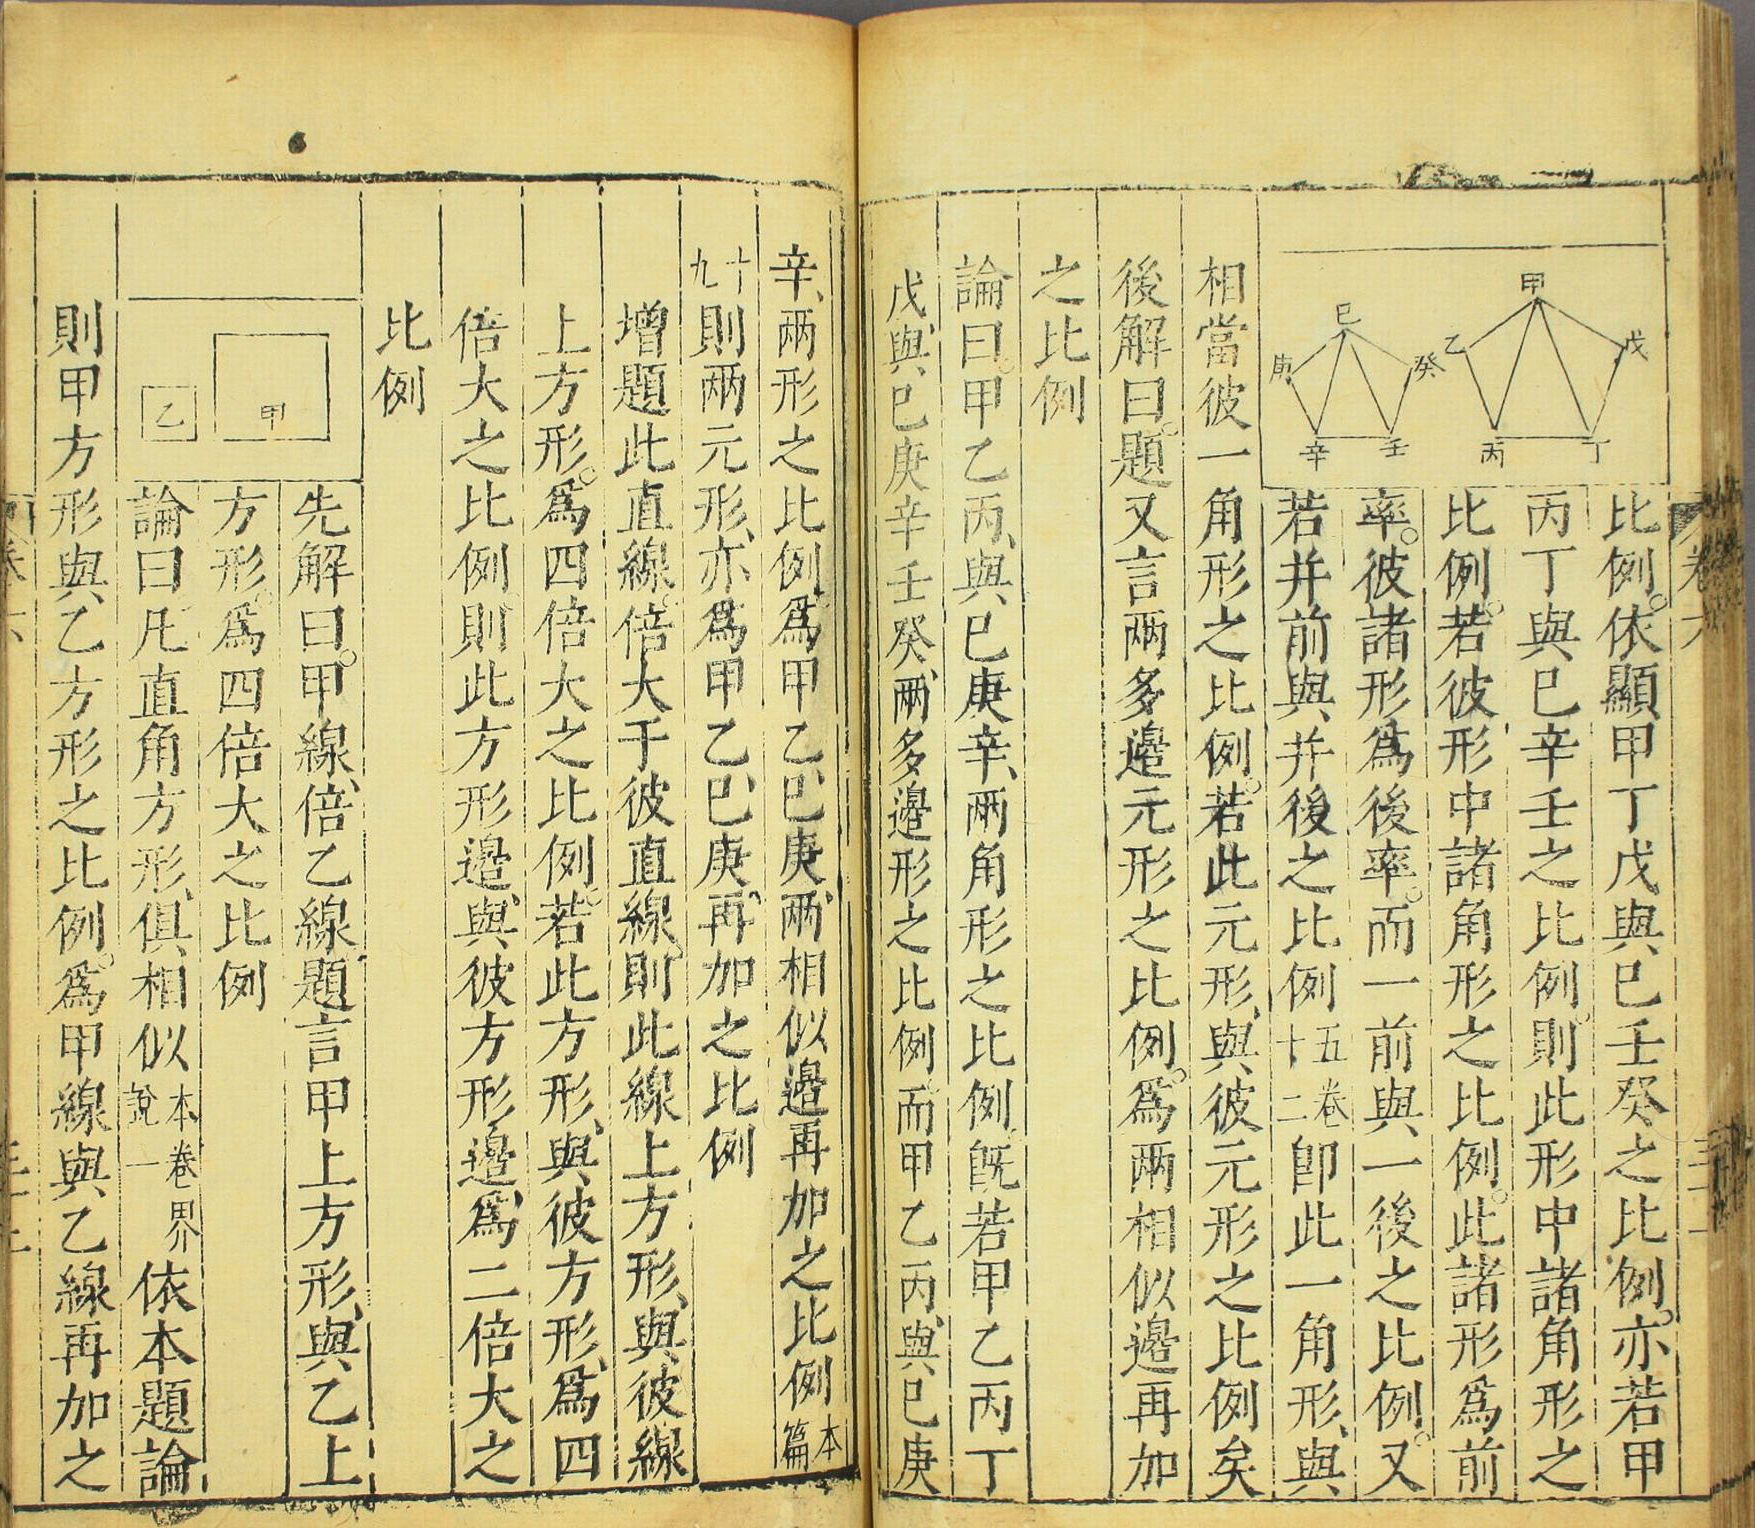 甲
戊
乙
丙
丁
巳
癸
庚
辛
壬
比例。依顯甲丁戊與巳壬癸之比例。亦若甲
丙丁與巳辛壬之比例。則此形中諸角形之
比例。若彼形中諸角形之比例。此諸形爲前
率。彼諸形爲後率。而一前與一後之比例。又
若并前與并後之比例五卷十二卽此一角形、與
相當彼一角形之比例。若此元形、與彼元形之比例矣
後解曰。題又言兩多邊元形之比例。爲兩相似邊再加
之比例
論曰。甲乙丙、與巳庚辛、兩角形之比例、旣若甲乙丙丁
戊、與巳庚辛壬癸、兩多邊形之比例、而甲乙丙、與巳庚
辛、兩形之比例、爲甲乙、巳庚、兩相似邊再加之比例本篇
十九則兩元形、亦爲甲乙、巳庚、再加之比例
增題此直線、倍大于彼直線、則此線上方形、與彼線
上方形。爲四倍大之比例。若此方形、與彼方形、爲四
倍大之比例則此方形邊、與彼方形邊、爲二倍大之
比例
甲
乙
先解曰。甲線、倍乙線、題言甲上方形、與乙上
方形。爲四倍大之比例
論曰凡直角方形、俱相似本卷界說一依本題論
則甲方形與乙方形之比例。爲甲線與乙線再加之